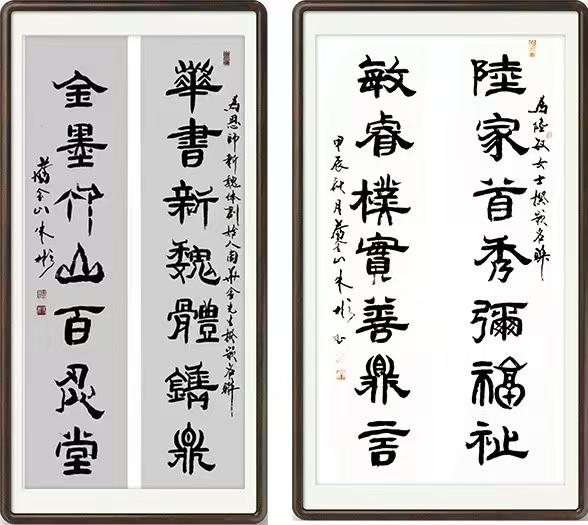 華書新魏體鐫鼎
為恩師新魏体創始人周華金先生撰嵌名聯
金墨仰山百忍堂
金山朱彬
陸家首秀彌福祉
為陸敏女士撰嵌名聯
敏睿樸實善鼎言
甲辰秋月金山朱彬书